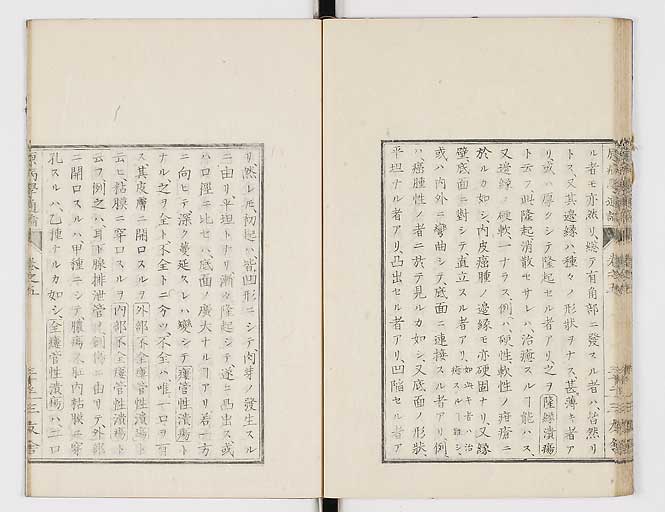 ル者モ亦然リ、総テ有角部ニ發スル者ハ皆然リ
トス、又其邊縁ハ種々ノ形狀ヲナス、甚薄キ者ア
リ、或ハ厚クシテ隆起セル者アリ、之ヲ隆縁潰瘍
ト云フ、此隆起消散セサレハ、治癒スルヿ能ハス、
又邊縁ノ硬軟一ナラス、例ハ硬性軟性ノ疳瘡ニ
於ルカ如シ、内皮癌腫ノ邊縁モ亦硬固ナリ、又縁
壁底面ニ對シテ直立スル者アリ、如此キ者ハ治癒スルヿ難シ、
或ハ内外ニ彎曲シテ、底面ニ連接スル者アリ、例
ハ癌腫性ノ者ニ於テ見ルカ如シ、又底面ノ形狀、
平坦ナル者アリ、凸出セル者アリ、凹陷セル者ア
リ、然レ𪜈初起ハ皆凹形ニシテ肉芽ノ發生スル
ニ由リ平坦トナリ漸々隆起シテ遂ニ凸出ス或
ハ口徑ニ比セハ底面ノ廣大ナルヿアリ若一方
ニ向ヒテ深ク蔓延スレハ變シテ瘻管性潰瘍ト
ナル之ヲ全ト不全トニ分ツ、不全ハ唯一口ヲ有
ス其皮膚ニ開口スルヲ外部不全瘻管性潰瘍ト
云ヒ粘膜ニ穿口スルヲ内部不全瘻管性潰瘍ト
云フ例之ハ耳下腺排泄管ノ創傷ニ由リテ外部
ニ開口スルハ甲種ニシテ、膿瘍ノ内粘膜ニ穿
孔スルハ、乙種ナルカ如シ、全瘻管性潰瘍ハ二口
原病學通論
卷之五
三友舍